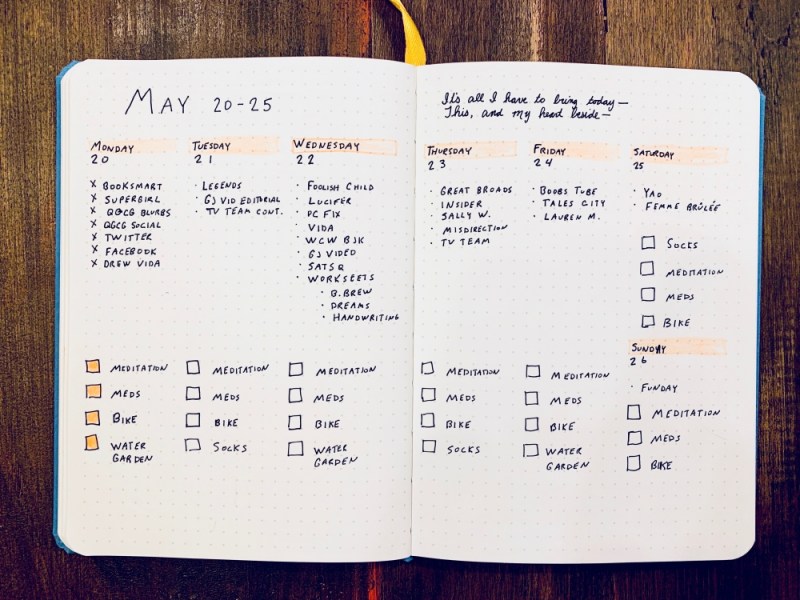 MAY 20-25
It's all I have to bring today—
This, and my heart beside—
MONDAY
20
X BOOKSMART
X SUPERGIRL
X Q&CG BLURBS
X Q&CG SOCIAL
X TWITTER
X FACEBOOK
X DREW VIDA
MEDITATION
MEDS
BIKE
WATER
GARDEN
TUESDAY
21
· LEGENDS
· GJ VID EDITORIAL
· TV TEAM CONT.
MEDITATION
MEDS
BIKE
SOCKS
WEDNESDAY
22
· FOOLISH CHILD
· LUCIFER
· PC FIX
· VIDA
· WCW BJK
· GJ VIDEO
· SATSQ
· WORKSEETS
· B.BREW
· DREAMS
· HANDWRITING
MEDITATION
MEDS
BIKE
WATER
GARDEN
THURSDAY
23
· GREAT BROADS
· INSIDER
· SALLY W.
· MISDIRECTION
· TV TEAM
MEDITATION
MEDS
BIKE
SOCKS
FRIDAY
24
· BOOBS TUBE
· TALES CITY
· LAUREN M.
MEDITATION
MEDS
BIKE
WATER
GARDEN
SATURDAY
25
· YAO
· FEMME BRÛLÉE
SOCKS
MEDITATION
MEDS
BIKE
SUNDAY
26
· FUNDAY
MEDITATION
MEDS
BIKE